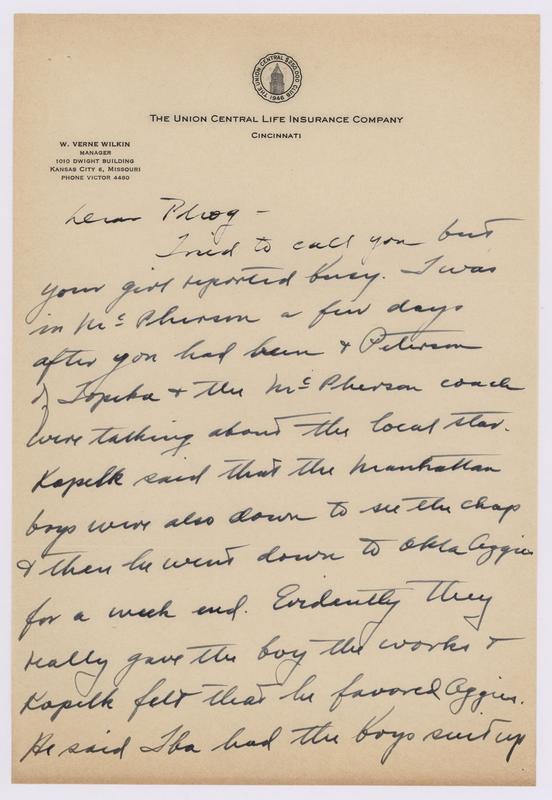 THE UNION CENTRAL $250,000 CLUB
1946
THE UNION CENTRAL LIFE INSURANCE COMPANY
CINCINNATI
W. VERNE WILKIN
MANAGER
1010 DWIGHT BUILDING
KANSAS CITY 6, MISSOURI
PHONE VICTOR 4480
Dear Phog -
Tried to call you but
your girl reported busy. I was
in McPherson a few days
after you had been & Peterson
of Topeka & the McPherson coach
were talking about the local star.
Kapelk said that the Manhattan
boys were also down to see the chap
& then he went down to Okla Aggies
for a week end. Evidently they
really gave the boy the works &
Kapelk felt that he favored Aggies.
He said Iba had the boys suit up